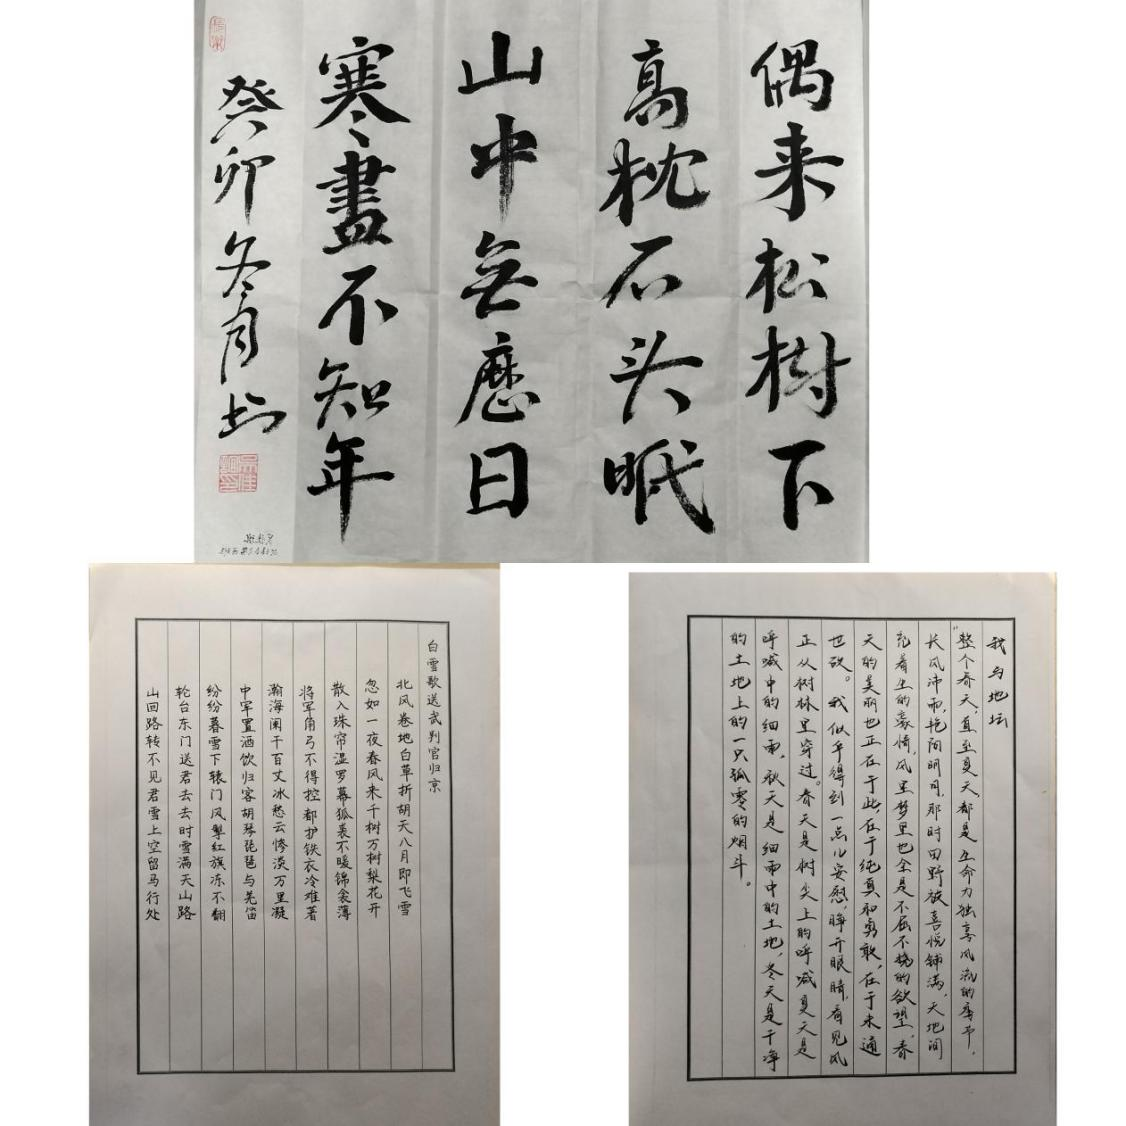 偶来松樹下
高枕石头眠
山中無歷日
寒盡不知年
癸卯冬月
白雪歌送武判官归京
北风卷地白草折胡天八月即飞雪
忽如一夜春风来千树万树梨花开
散入珠帘湿罗幕狐裘不暖锦衾薄
将军角弓不得控都护铁衣冷难着
瀚海阑干百丈冰愁云惨淡万里凝
中军置酒饮归客胡琴琵琶与羌笛
纷纷暮雪下辕门风掣红旗冻不翻
轮台东门送君去去时雪满天山路
山回路转不见君雪上空留马行处
我与地坛
“整个春天，直至夏天，都是生命力独享风流的季节，
长风沛雨，艳阳明月，那时田野被喜悦铺满，天地间
充着生的豪情，风里梦里也全是不屈不挠的欲望，春
天的美丽也正在于此，在于纯真和勇敢，在于未通
世故。我似乎得到一点儿安慰，睁开眼睛，看见风
正从树林里穿过。春天是树尖上的呼喊，夏天是
呼喊中的细雨，秋天是细雨中的土地，冬天是干净
的土地上的一只孤零的烟斗。